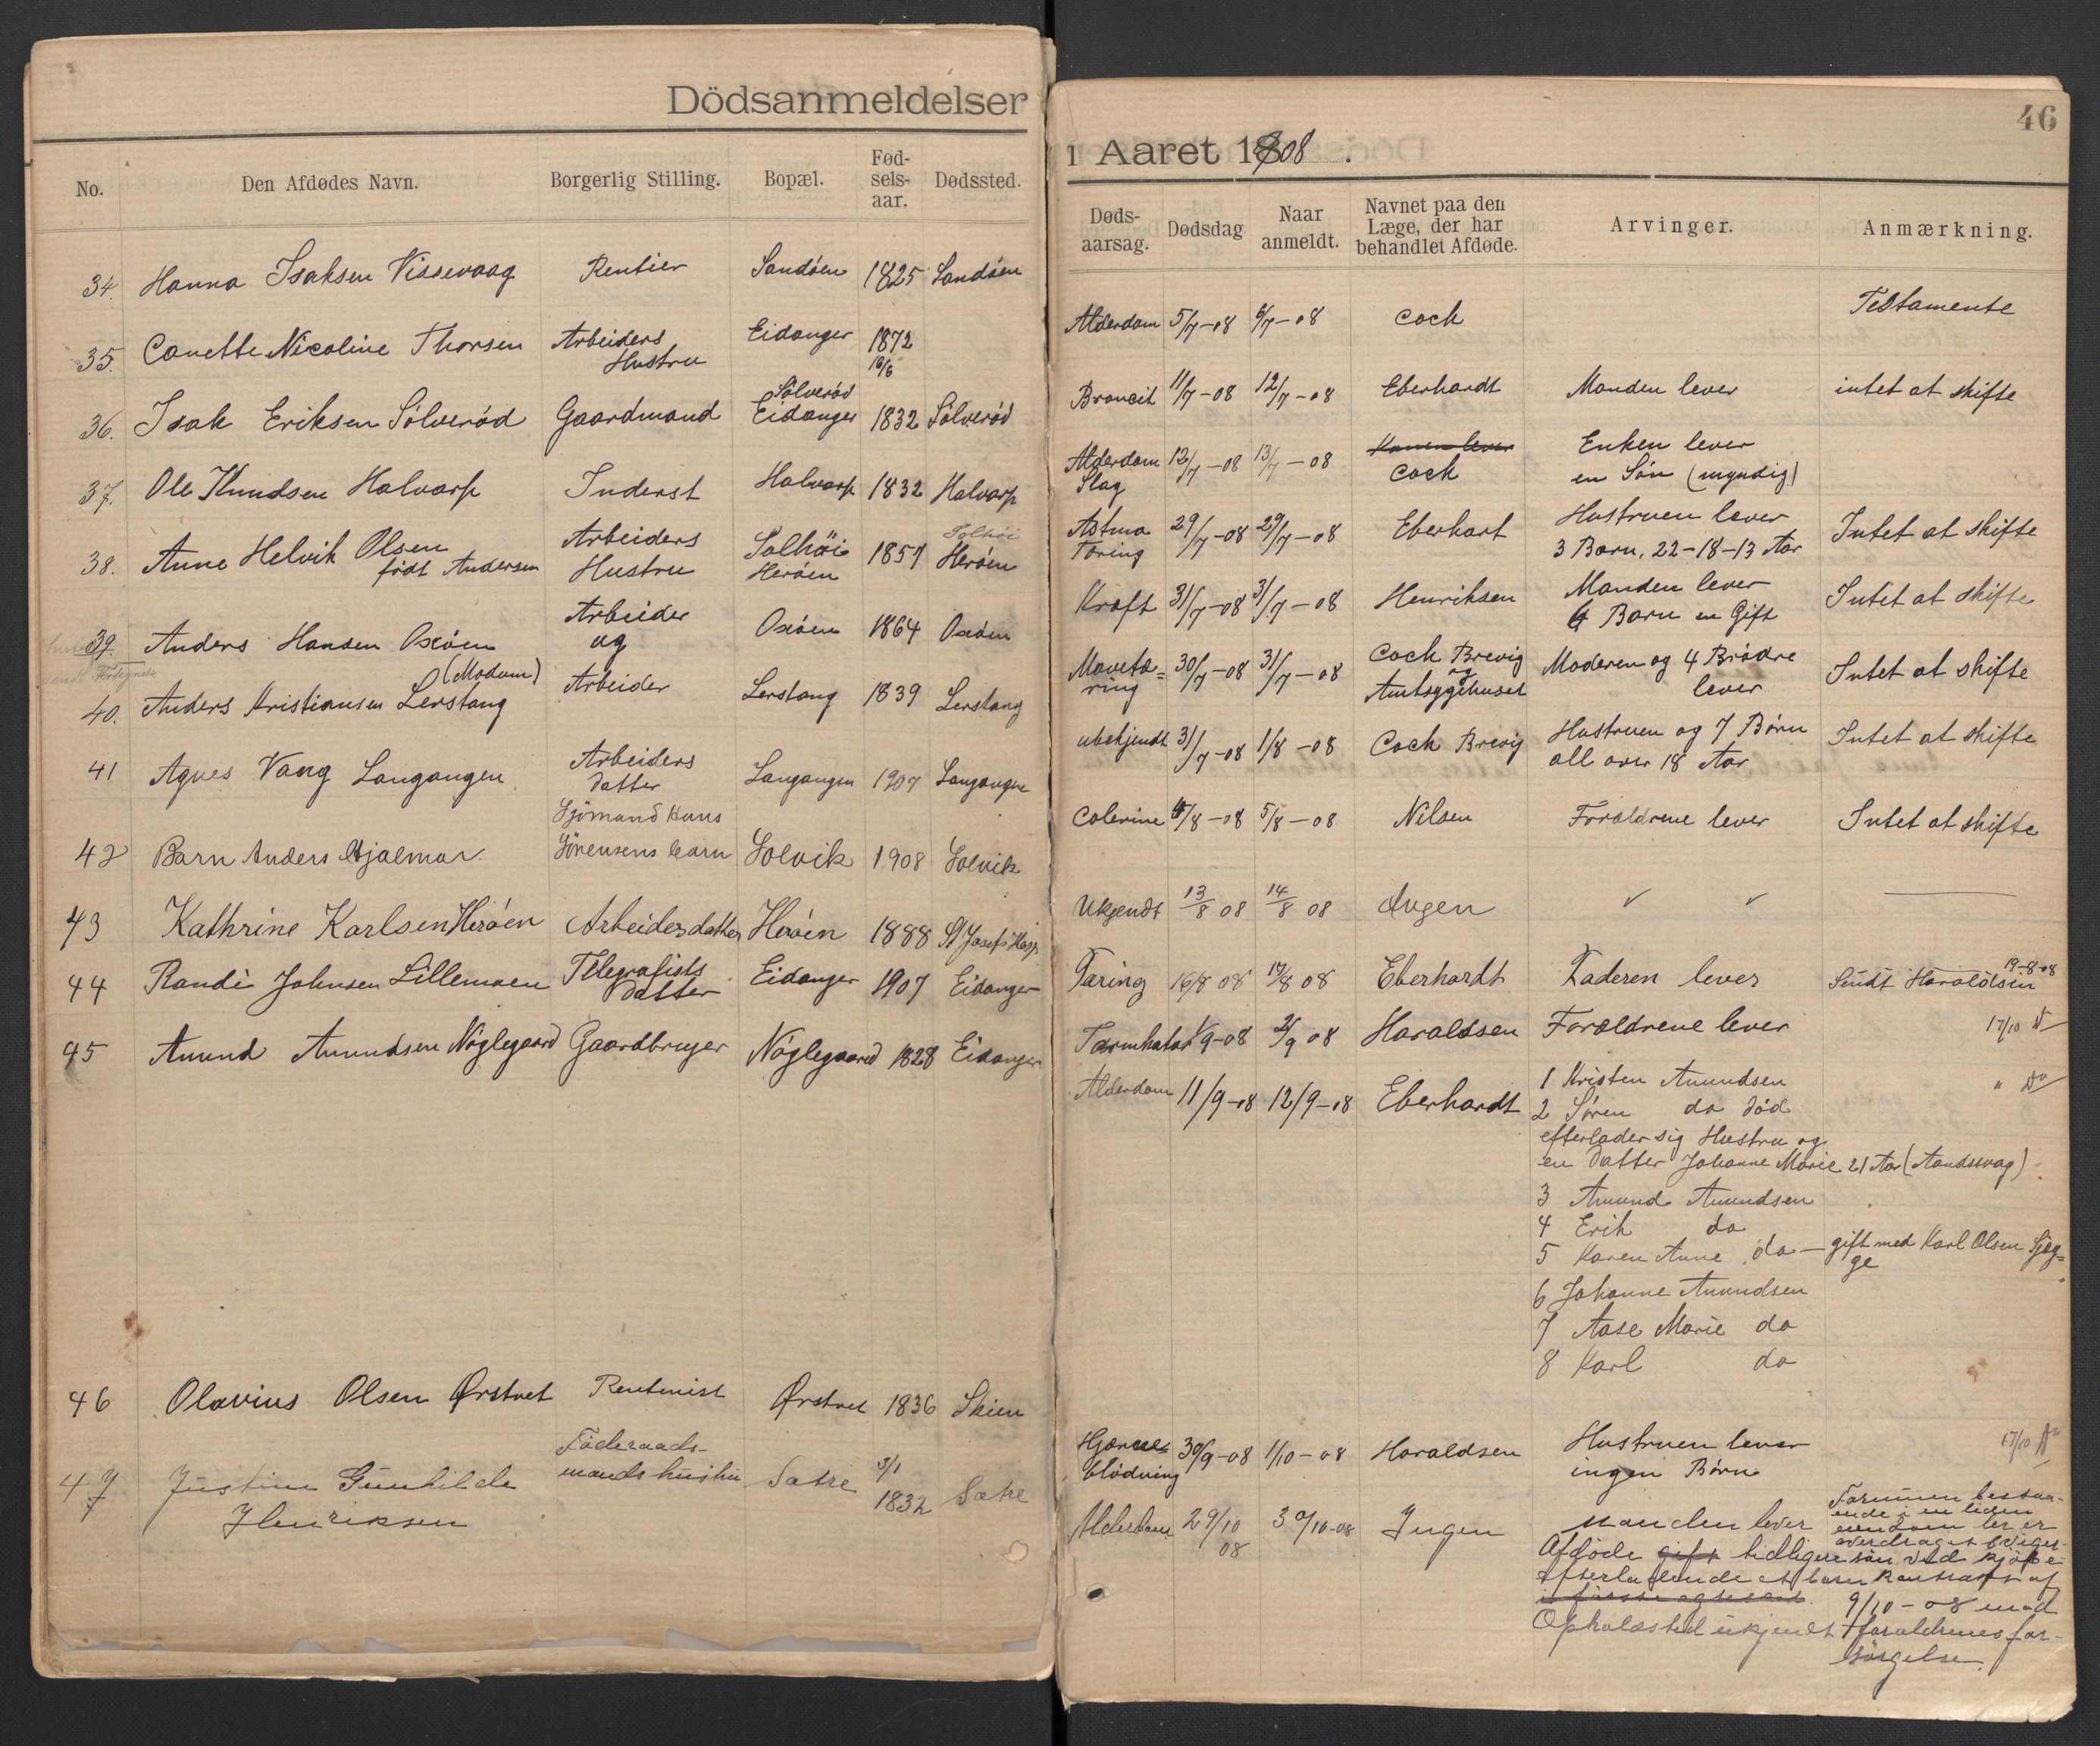 Dödsanmeldelser
No.
Den Afdødes Navn.
Borgerlig Stilling.
Bopæl.
Fød-
sels-
aar.
Dødssted.
34. Hanna Isaksen Vissevaag Rentier Sandøen 1825 Sandøen
35. Canette Nicoline Thorsen Arbeiders Eidanger 1872
Hustru 16/6
Sølverød
36. Isak Eriksen Sølverød Gaardmand Eidanger 1832 Sølverød
37. Ole Knudsen Halvarp Inderst Halvarp 1832 Halvarp
38. Anne Helvik Olsen Arbeiders Solhöi 1857 Solhöi
født Andersen Hustru Herøen Herøen
39. Anders Hansen Oxöen Arbeider Oxöen 1864 Oxöen
og
(Modum)
40. Anders Kristiansen Lerstang Arbeider Lerstang 1839 Lerstang
41 Agnes Vang Langangen Arbeiders Langangen 1907 Langangen
datter
Sjömand Hans
42 Barn Anders Hjalmar. Sörensens barn Solvik 1908 Solvik
43 Kathrine Karlsen Herøen Arbeidersdatter Herøen 1888 St Josefs Hosp
44 Randi Johnsen Lillemoen Telegrafists Eidanger 1907 Eidanger
Datter
45 Amund Amundsen Nøglegaard Gaardbruger Nøglegaard 1828 Eidanger
46 Olavius Olsen Ørstvet Rentenist Ørstvet 1836 Skien
Föderaads-
47 Justine Gunhilde mands hustru Sætre 3/1 Sætre
Henriksen 1832
46
i Aaret 1908.
Døds-
aarsag.
Dødsdag
Naar
anmeldt.
Navnet paa den
Læge, der har
behandlet Afdøde.
Arvinger.
Anmærkning.
Alderdom 5/7-08 6/7-08 Cock Testamente
Broncit 11/7-08 12/7-08 Eberhardt Manden lever intet at skifte
Alderdom 12/7-08 13/7-08 Konen lever Enken lever
Slag Cock en Søn (myndig)
Astma 29/7-08 29/7-08 Eberhart Hustruen lever Intet at skifte
Tæring 3 Barn, 22-18-13 Aar
Kræft 31/7-08 31/7-08 Henriksen Manden lever Intet at skifte
4 Barn en Gift
Mavetæ= 30/7-08 31/7-08 Cock Brevig Moderen og 4 Brødre Intet at skifte
ring og lever
Amtsygehuset
ubekjendt 31/7-08 1/8-08 Cock Brevig Hustruen og 7 Børn Intet at skifte
all over 18 Aar
Colerine 4/8-08 5/8-08 Nilsen Forældrene lever Intet at skifte
Ukjendt 13/8 08 14/8 08 Ingen
Tæring 16/8 08 17/8 08 Eberhardt Faderen lever Sendt Haraldsen 19-8-08
Tarmkatar 1/9-08 2/9 08 Haraldsen Forældrene lever 17/10
Alderdom 11/9-08 12/9-08 Eberhardt 1 Kristen Amundsen
2 Søren do død
efterlader sig Hustru og
en datter Johanne Marie 21 Aar (Aandssvag)
3 Amund Amundsen
4 Erik do
5 Karen Anne do - gift med Karl Olsen Sjeg=
ge
6 Johanne Amundsen
7 Aase Marie do
8 Karl do
Hjærne= 30/9-08 1/10-08 Haraldsen Hustruen lever 17/10
blödning ingen Børn
Alderdom 29/10 30/10-08 Ingen Manden lever
08
Afdøde gift tidligere
efterladende et barn
i første egteskab.
Opholdssted ukjendt
Formuen bestaa-
ende i en liden
eiendom der er
overdraget
søn ved kjøpe
kontrakt af
9/10-08 mod
forældrenes for-
sørgelse.